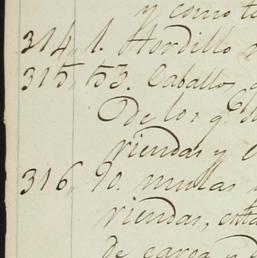 y como
314,, 1. Tordillo
315,, 53. Caballos
de los q.e
riendas y
316,, 90. mulas
riendas,
de carga y